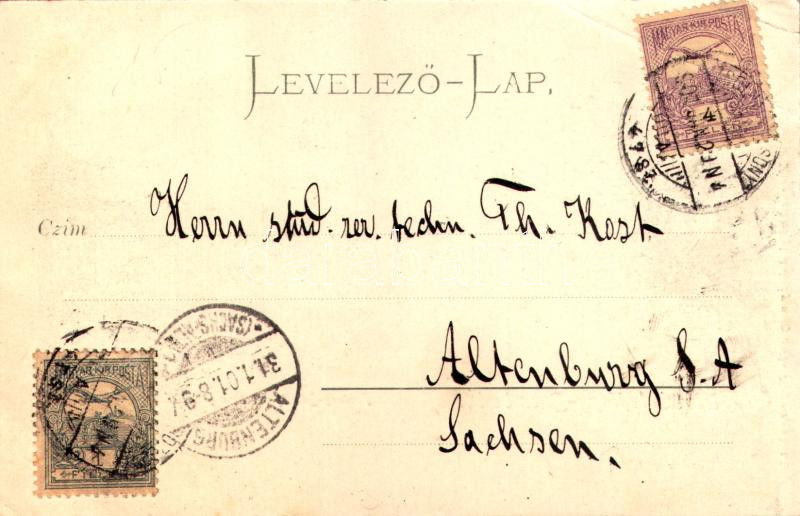 LEVELEZŐ-LAP.
MAGYAR KIR. POSTA
Czim Herrn stud. rer. techn. Th. Kost.
Altenburg S. A
Sachsen.
ALTENBURG
31.1.01.8-9V.
MAGYAR KIR. POSTA